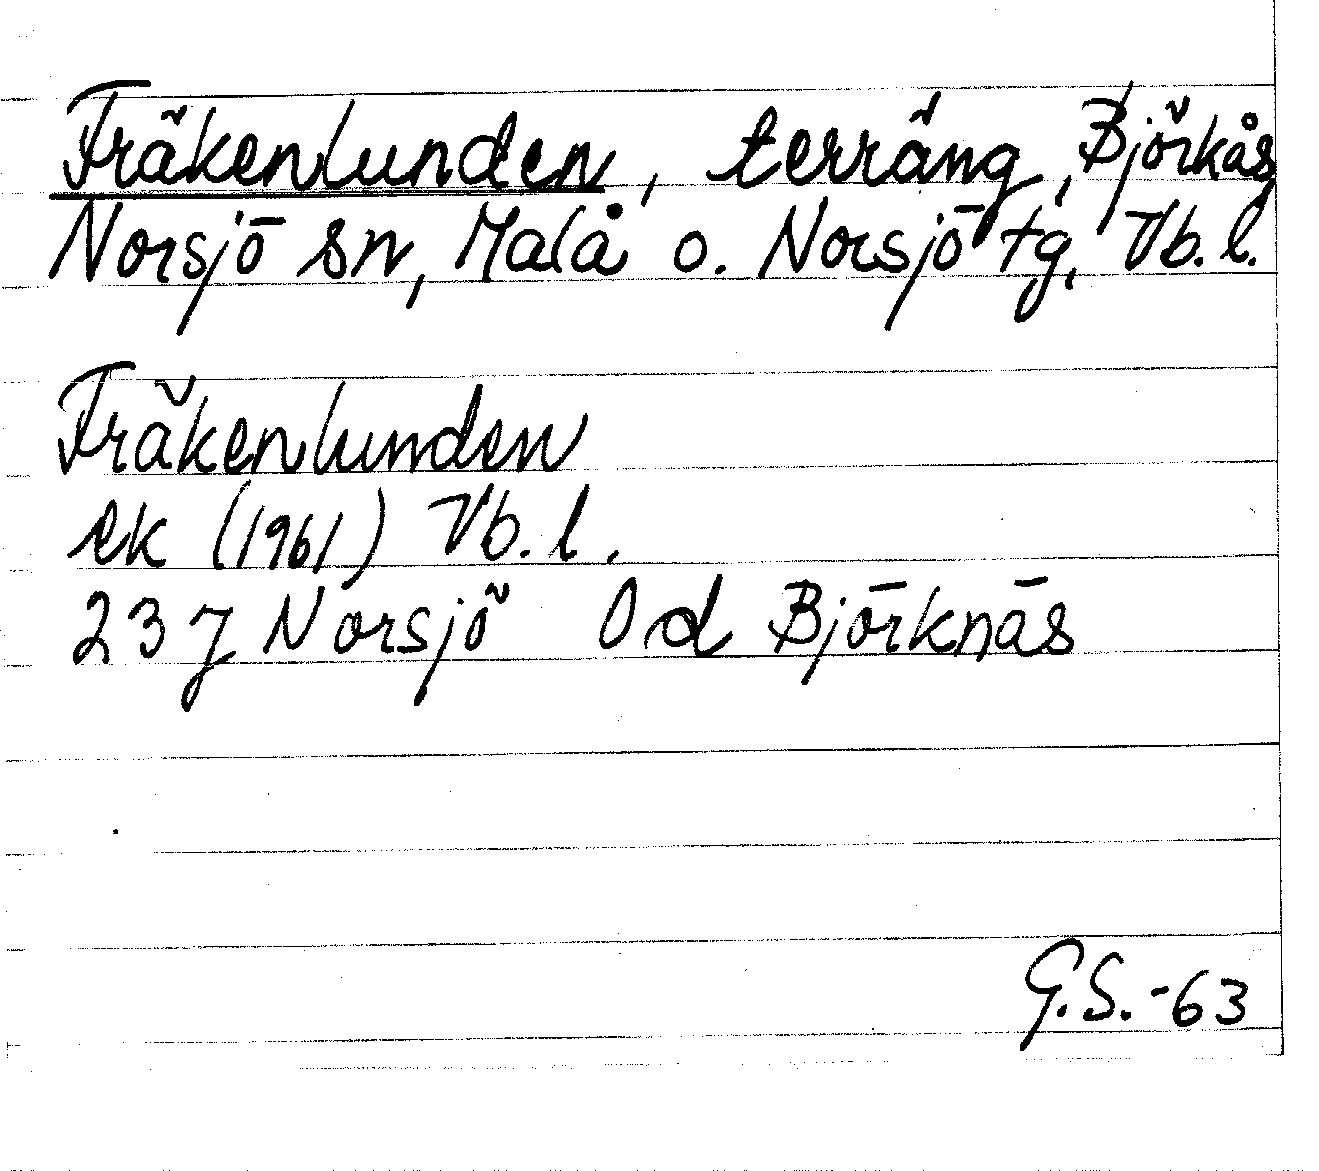 Fräkenlunden, terräng, Björkås
Norsjö sn, Malå o. Norsjö tg, Vb. l.
Fräkenlunden
ek (1961) Vb. l.
23 J Norsjö 0 d Björknäs
G.S.-63